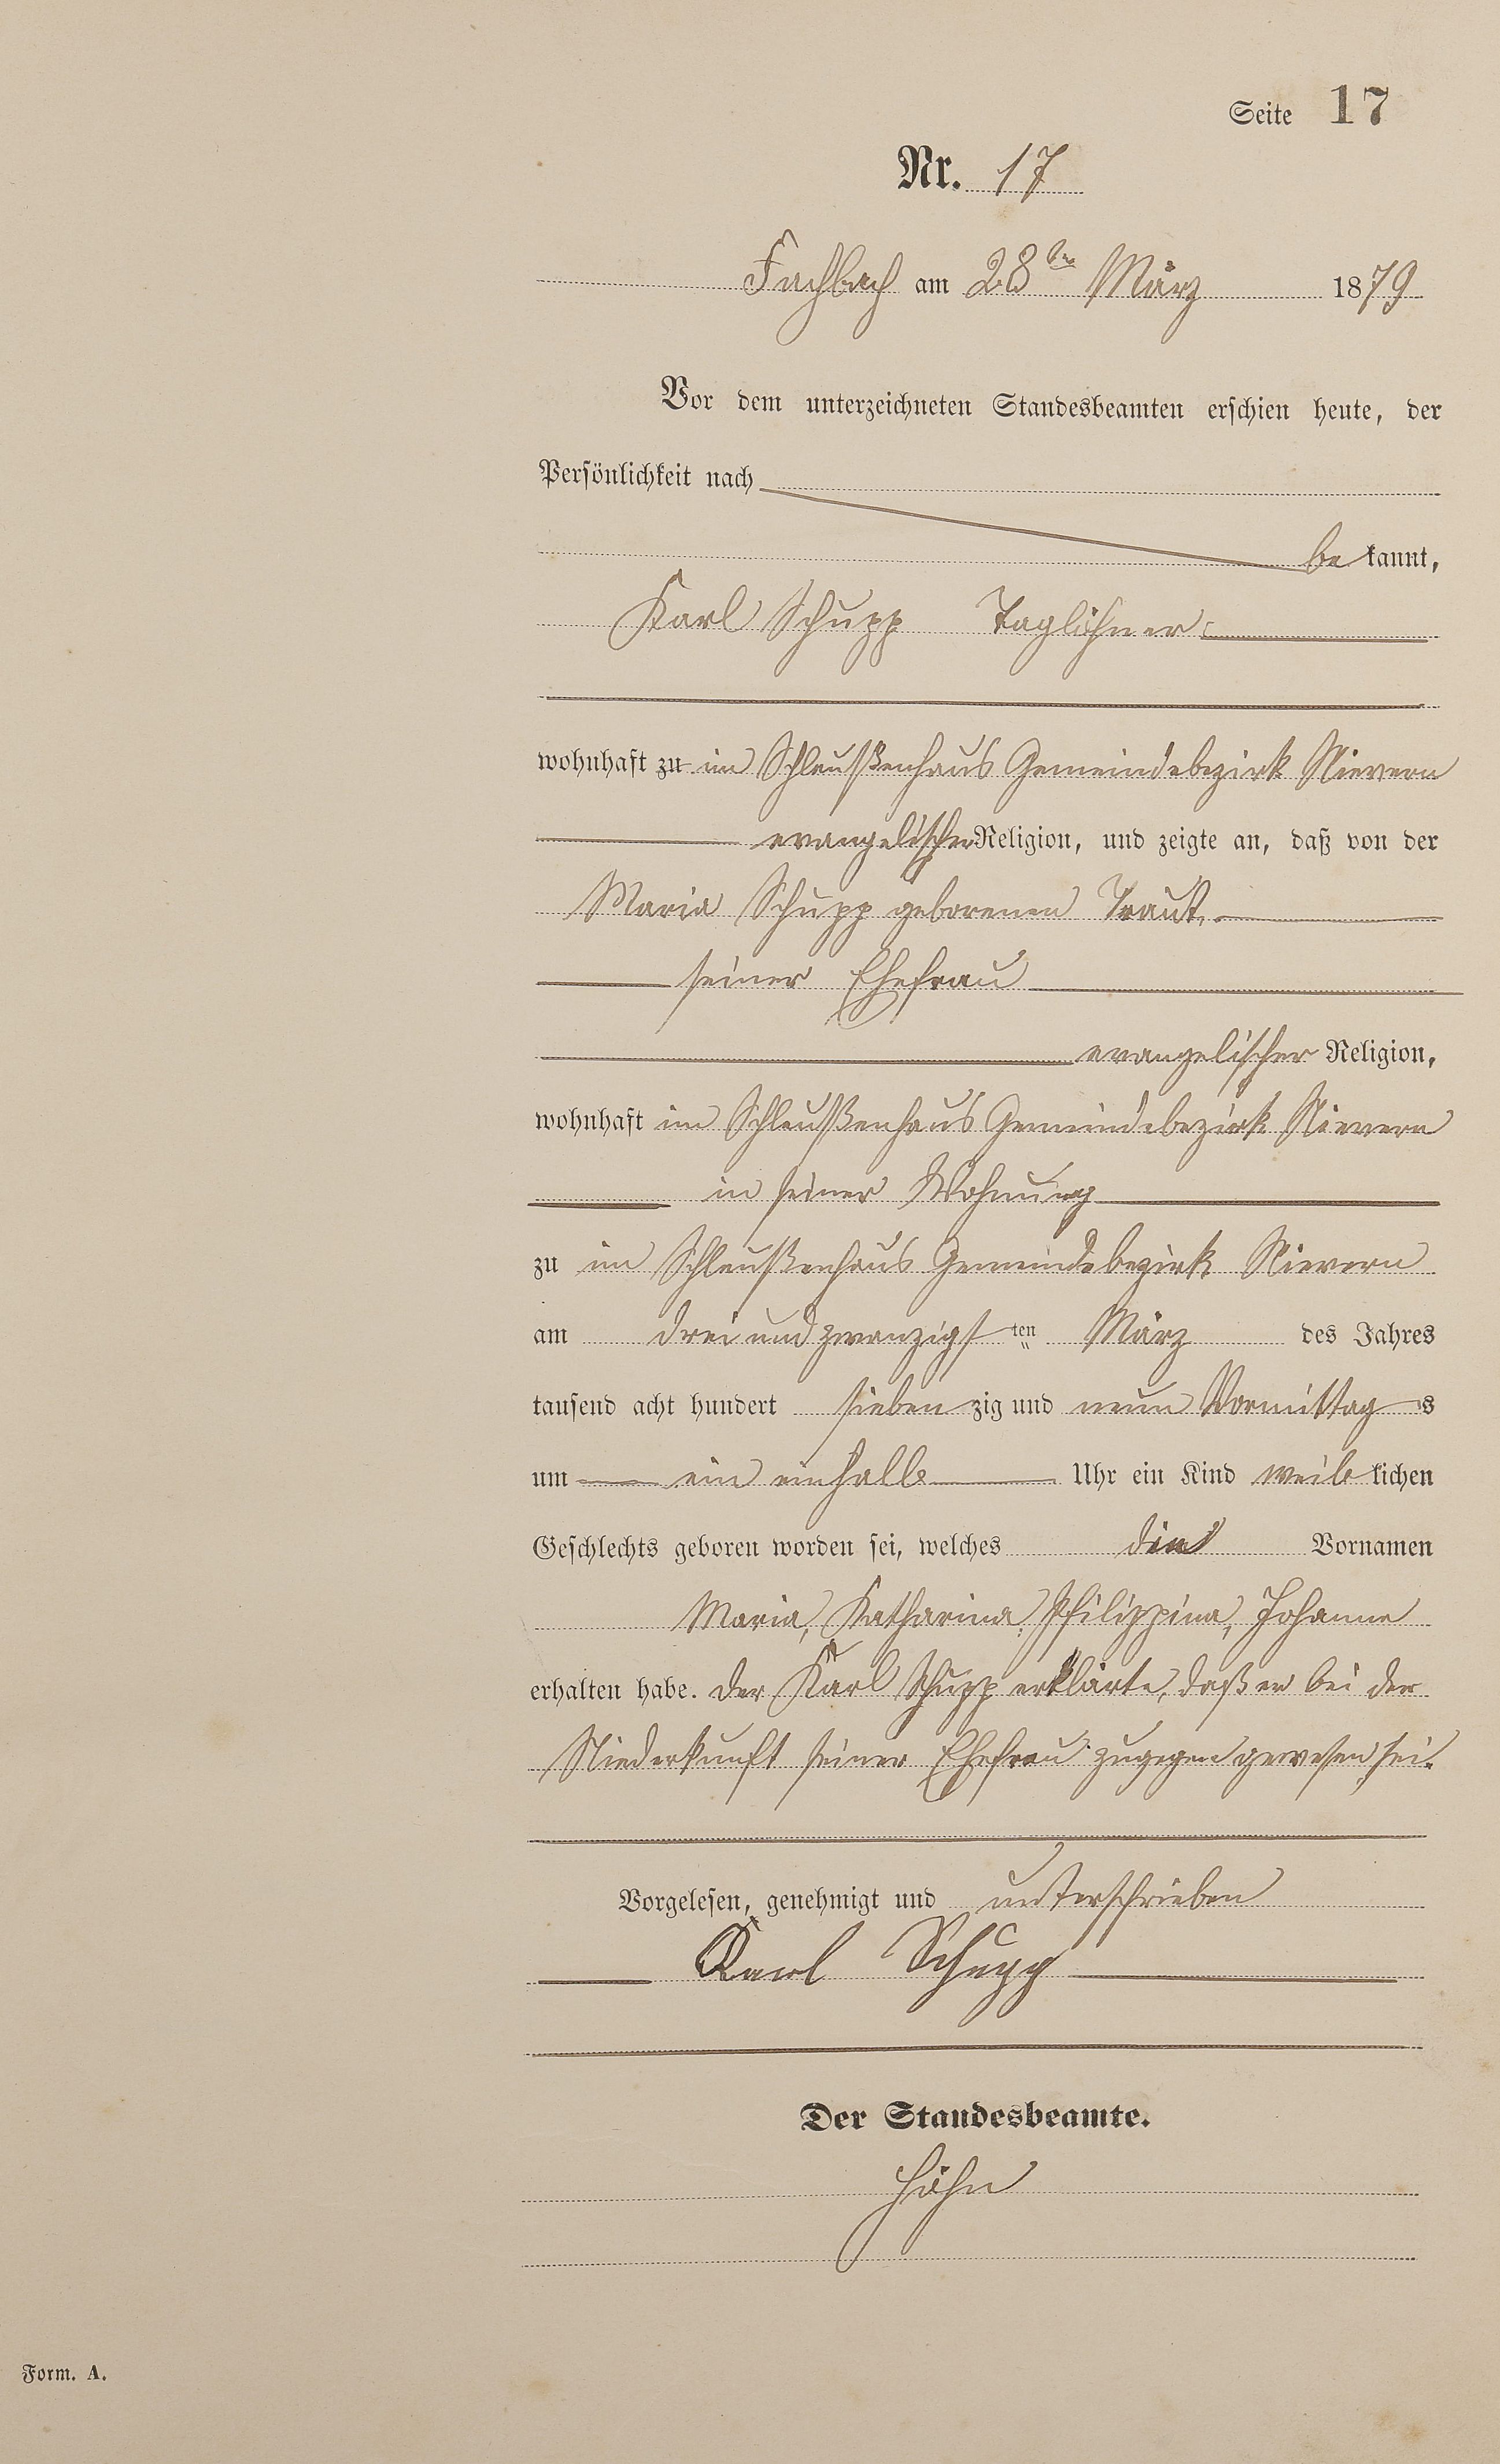 Seite 17
Nr. 17
Fachbach am 28ten März 1879
Vor dem unterzeichneten Standesbeamten erschien heute, der
Persönlichkeit nach
be kannt,
Karl Schupp Taglöhner
wohnhaft zu im Schleußenhaus Gemeindebezirk Nievern
evangelischer Religion, und zeigte an, daß von der
Maria Schupp geborenen Traut,
seiner Ehefrau
evangelischer Religion,
wohnhaft im Schleußenhaus Gemeindebezirk Nievern
in seiner Wohnung
zu im Schleußenhaus Gemeindebezirk Nievern
am drei und zwanzigsten März des Jahres
tausend acht hundert sieben zig und neun Vormittags
um ein einhalb Uhr ein Kind weib lichen
Geschlechts geboren worden sei, welches die Vornamen
Maria, Katharina, Philippina, Johanne
erhalten habe. Der Karl Schupp erklärte, daß er bei der
Niederkunft seiner Ehefrau zugegen gewesen sei.
Vorgelesen, genehmigt und unterschrieben
Karl Schupp
Der Standesbeamte.
Höhn
Form. A.